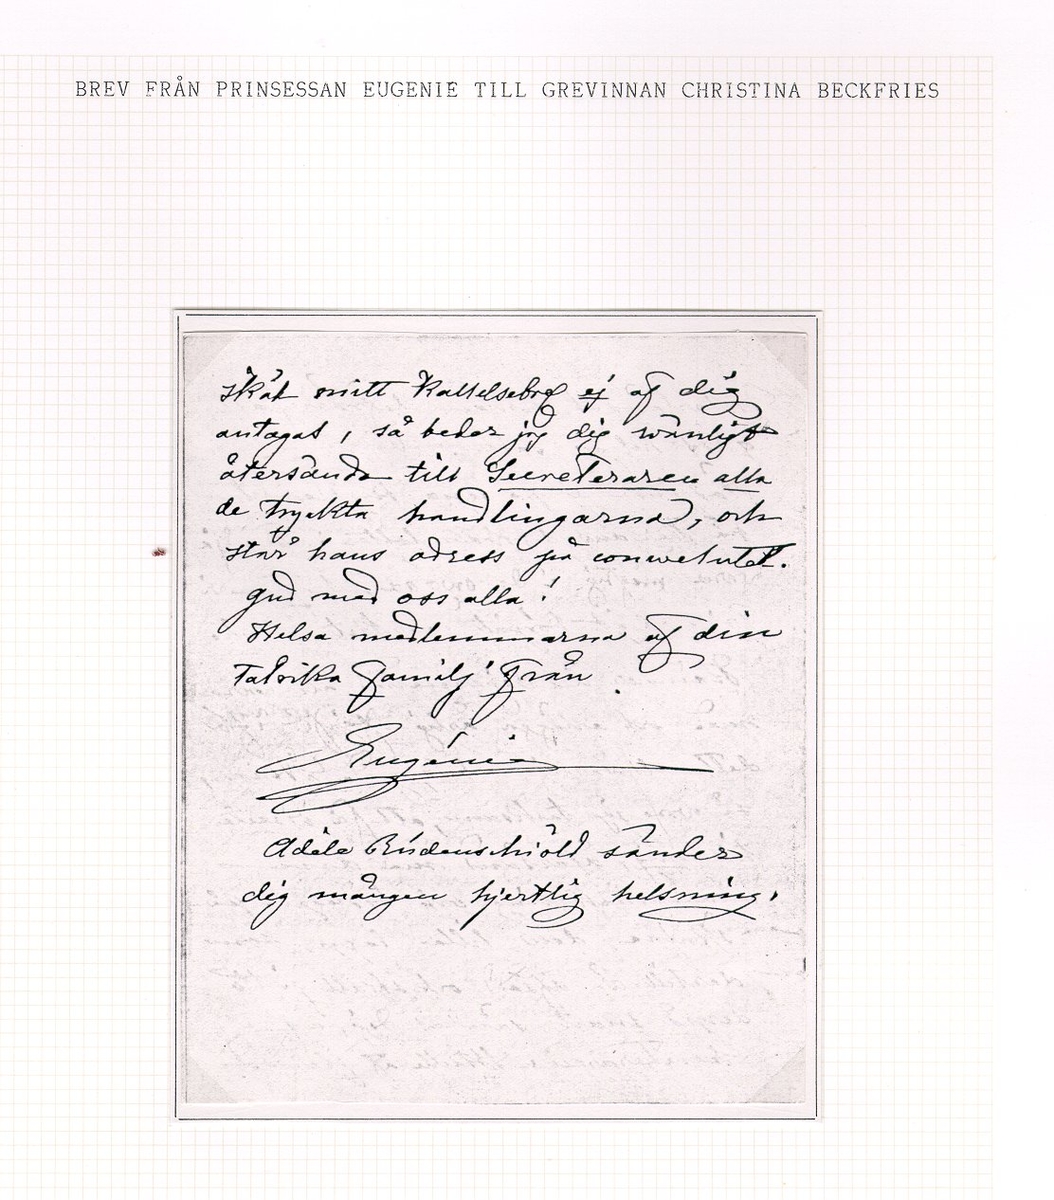 BREV FRÅN PRINSESSAN EUGENIE TILL GREVINNAN CHRISTINA BECKFRIES
skäl mitt Kallelsebref ej af dig
antagas, så beder jag dig wänligt
återsända till Secreteraren alla
de tryckta handlingarna, och
står hans adress på convelutet.
Gud med oss alla!
Helsa medlemmarna af din
talrika familj från
Eugénie
Adèle Rudenschiöld sänder
dig mången hjertlig helsning.